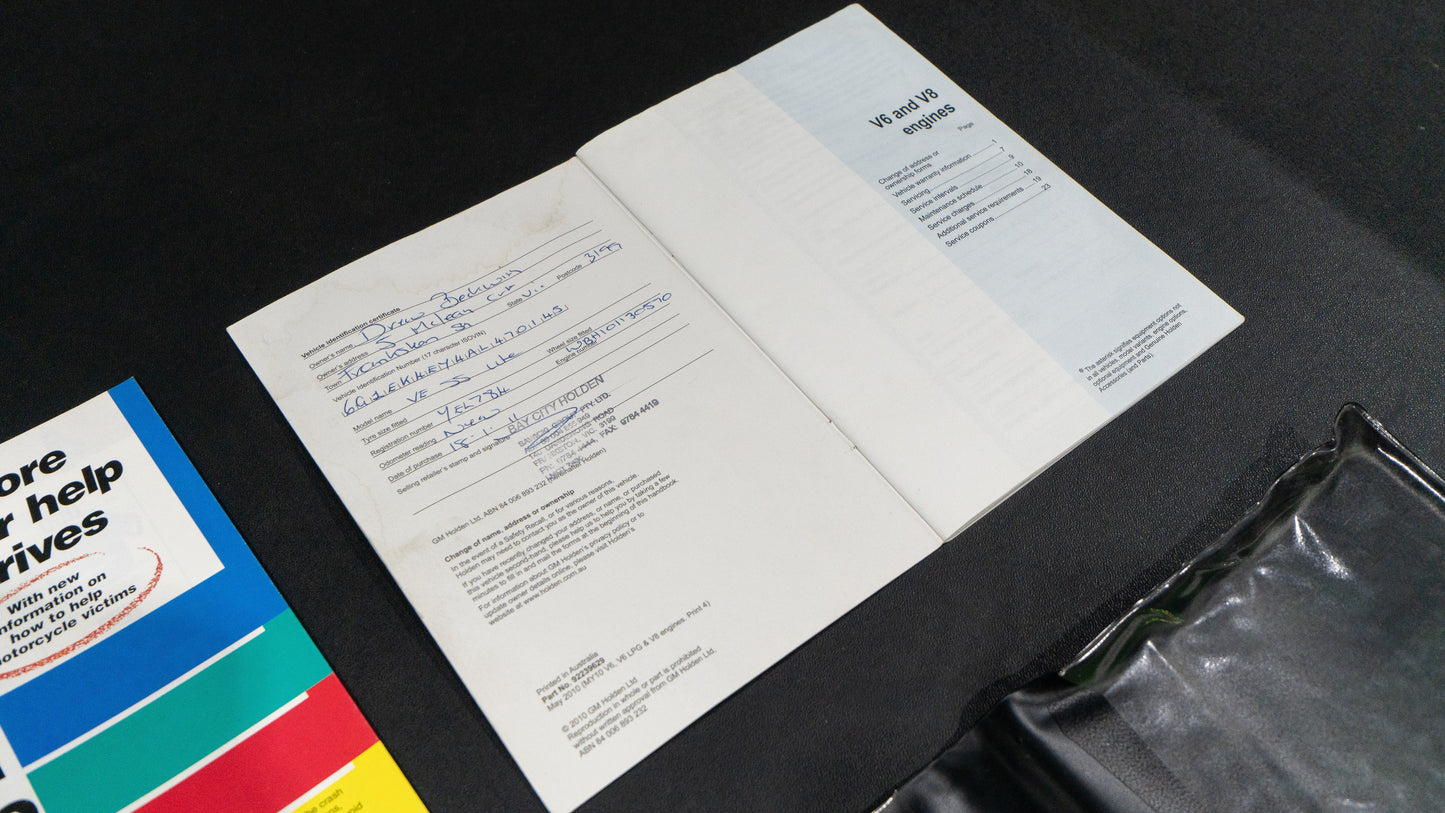 Vehicle identification certificate
Owner's name Drew Beckwith
Owner's address 5 McLean Crt
Town Frankston Sth State Vic Postcode 3199
Vehicle Identification Number (17 character ISOVIN)
Model name VE SS Ute
Tyre size fitted Wheel size fitted
Registration number YEL784 Engine number
Odometer reading New
Date of purchase 18.1.11
Selling retailer's stamp and signature BAY CITY HOLDEN
PTY. LTD.
ROAD
VIC. 3199
FAX: 9784 4419
GM Holden Ltd. ABN 84 006 893 232 (hereinafter Holden)
Change of name, address or ownership
In the event of a Safety Recall, or for various reasons,
Holden may need to contact you as the owner of this vehicle.
If you have recently changed your address, or name, or purchased
this vehicle second-hand, please help us to help you by taking a few
minutes to fill in and mail the forms at the beginning of this handbook.
For information about GM Holden's privacy policy or to
update owner details online, please visit Holden's
website at www.holden.com.au
Printed in Australia
Part No. 92239629
May 2010 (MY10 V6, V6 LPG & V8 engines: Print 4)
© 2010 GM Holden Ltd
Reproduction in whole or part is prohibited
without written approval from GM Holden Ltd.
ABN 84 006 893 232
V6 and V8
engines
Page
Change of address or
ownership forms 1
Vehicle warranty information 7
Servicing 9
Service intervals 10
Maintenance schedule 18
Service charges 19
Additional service requirements 23
Service coupons
* The asterisk signifies equipment options not
in all vehicles, model variants, engine options,
optional equipment and Genuine Holden
Accessories (and Parts)
ore
r help
rives
With new
information on
how to help
motorcycle victims
e crash